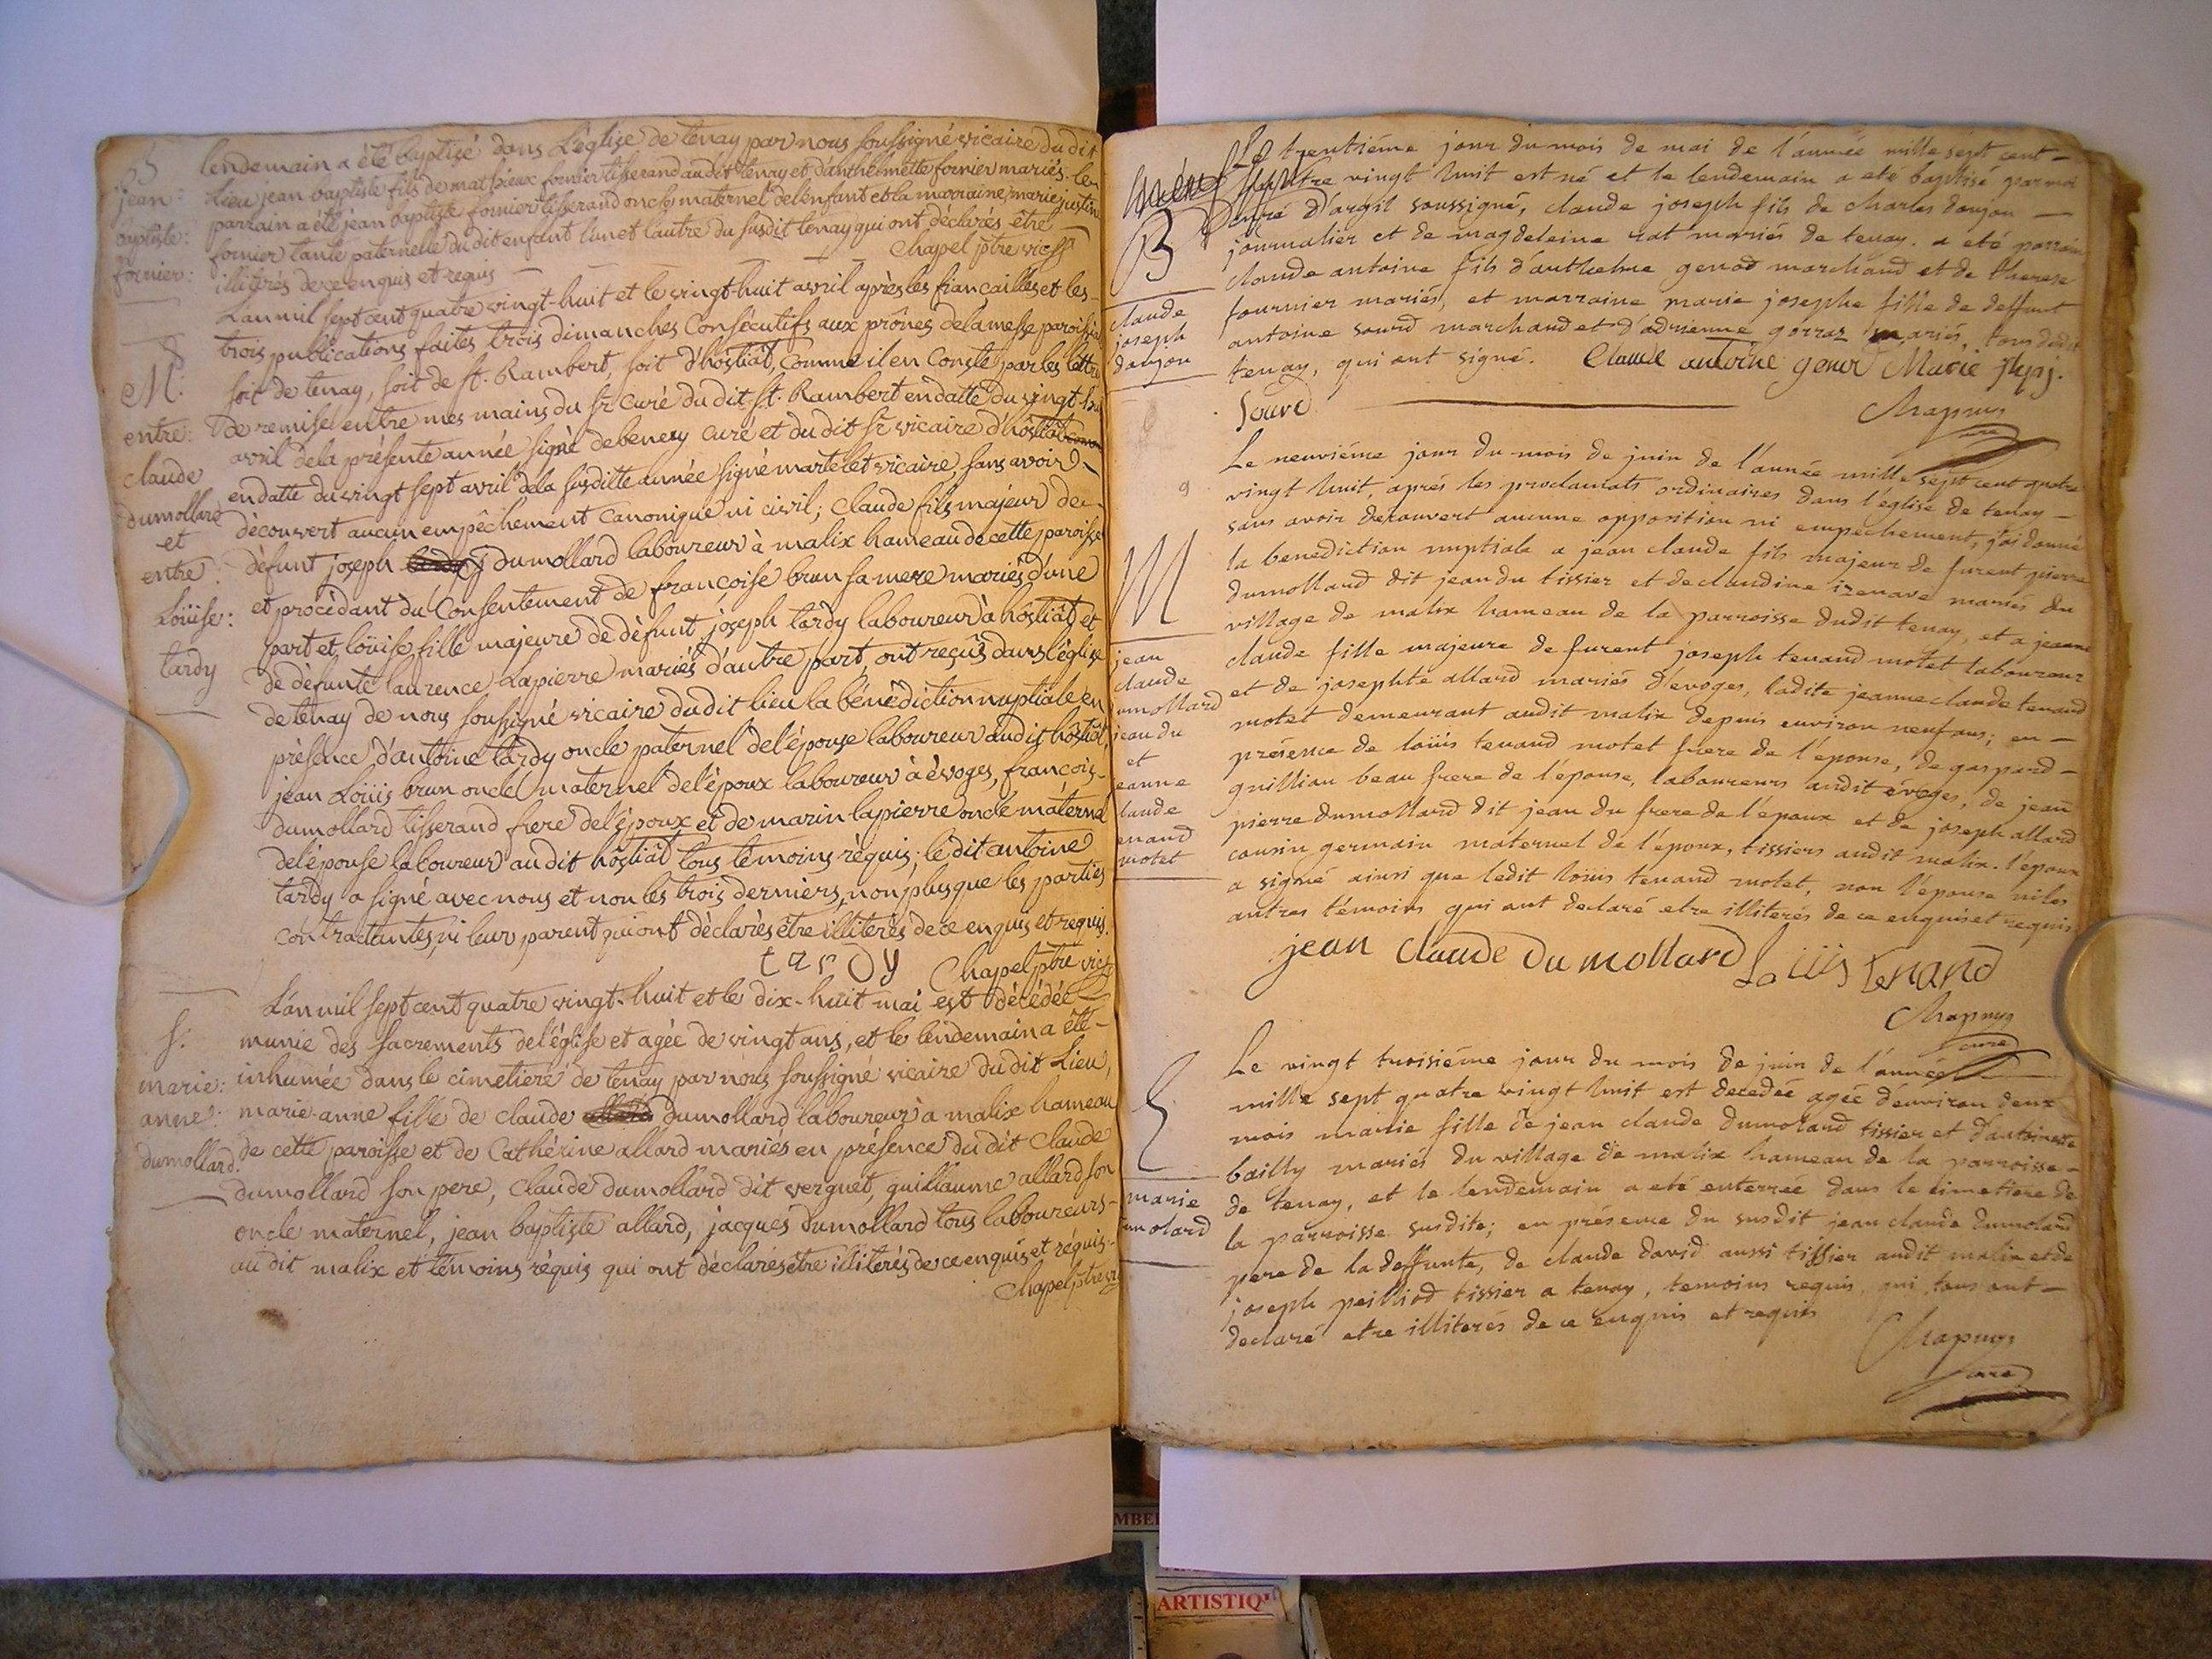 B
jean:
baptiste:
fornier:
lendemain a été baptisé dans L'église de tenay par nous soussigné vicaire du dit
Lieu jean baptiste fils de mathieux fornier tisserand au dit tenay et d'anthelmette fornier mariés. Le
parrain a été jean baptiste fornier tisserand oncle maternel de l'enfant et la marraine marie justin
fornier tante paternelle du dit enfant l'un et l'autre du susdit tenay qui ont déclarés être
illitérés de ce enquis et requis — chapel ptre vic
M:
entre:
claude
dumollard
et
entre:
Loüise:
tardy
L'an mil sept cent quatre vingt-huit et le vingt-huit avril après les fiançailles et les
trois publications faites trois dimanches consécutifs aux prônes de la messe paroissia
soit de tenay, soit de st. Rambert, soit d'hostiat, comme il en conste par les lettre
de remise entre mes mains du sr curé du dit st. Rambert en datte du vingt-hui
avril de la présente année signé debeney curé et du dit sr vicaire d'hostiat
en datte du vingt sept avril de la susditte année signé martelet vicaire, sans avoir
découvert aucun empêchement canonique ni civil; claude fils majeur de
défunt joseph dumollard laboureur à malix hameau de cette paroisse
et procédant du consentement de francoise brun sa mere mariés d'une
part et loüise fille majeure de défunt joseph tardy laboureur à hostiat et
de défunte laurence Lapierre mariés d'autre part, ont reçus dans l'église
de tenay de nous soussigné vicaire du dit lieu la bénédiction nuptiale en
présence d'antoine tardy oncle paternel de l'épouse laboureur au dit hostiat,
jean Loüis brun oncle maternel de l'époux laboureur à évoges, françois
dumollard tisserand frere de l'époux et de marin lapierre oncle máternel
de l'épouse laboureur au dit hostiat tous témoins réquis; le dit antoine
tardy a signé avec nous et non les trois derniers, non plus que les parties
contractantes, ni leur parent qui ont déclarés être illiterés de ce enquis et requis.
tardy Chapel ptre vic
s:
marie:
anne:
dumollard.
L'an mil sept cent quatre vingt-huit et le dix-huit mai est décédée
munie des sacrements de l'église et agée de vingt ans, et le lendemain a été
inhumée dans le cimetiere de tenay par nous soussigné vicaire du dit Lieu,
marie-anne fille de claude dumollard laboureur à malix hameau
de cette paroisse et de Cathérine allard mariés en présence du dit Claude
dumollard son pere, claude dumollard dit verguet, guillaume allard son
oncle maternel, jean baptiste allard, jacques dumollard tous laboureurs
au dit malix et témoins réquis qui ont déclarés être illiterés de ce enquis et réquis.
Chapel ptre vic
B
claude
joseph
doujon
Le trentiéme jour du mois de mai de l'année mille sept cent
quatre vingt huit est né et le lendemain a eté baptisé par moi
curé d'argil soussigné, claude joseph fils de charles doujon
journalier et de magdeleine rat mariés de tenay. a eté parrain
claude antoine fils d'anthelme genod marchand et de therese
fournier mariés, et marraine marie josephe fille de deffunt
antoine sourd marchand et d'adrienne gorraz mariés, tous dudit
tenay, qui ont signé. Claude antoine genod Marie jhpj.
Sourd Chapuys
curé
9
M
jean
claude
umollard
jean du
et
eanne
laude
enand
motet
Le neuviéme jour du mois de juin de l'année mille sept cent quatre
vingt huit, aprés les proclamats ordinaires dans l'église de tenay
sans avoir decouvert aucune opposition ni empechement, j'ai donné
la benediction nuptiale a jean claude fils majeur de furent pierre
dumollard dit jean du tissier et de claudine izenave mariés du
village de malix hameau de la parroisse dudit tenay, et a jeanne
claude fille majeure de furent joseph tenand motet laboureur
et de josephte allard mariés d'evoges, ladite jeanne claude tenand
motet demeurant audit malix depuis environ neuf ans; en
présence de loüis tenand motet frere de l'epouse, de gaspard
guillian beau frere de l'épouse, laboureurs audit évoges, de jean
pierre dumollard dit jean du frere de l'epoux et de joseph allard
cousin germain maternel de l'époux, tissiers audit malix. l'époux
a signé ainsi que ledit loüis tenand motet, non l'épouse ni les
autres témoins qui ont declaré etre illiterés de ce enquis et requis
jean claude dumollard Loüis tenand
Chapuys
curé
S
marie
umolard
Le vingt troisiéme jour du mois de juin de l'année
mille sept quatre vingt huit est decedée agée d'environ deux
mois marie fille de jean claude dumolard tissier et d'antoinette
bailly mariés du village de malix hameau de la parroisse
de tenay, et le lendemain a eté enterrée dans le cimetiere de
la parroisse susdite; en présence du susdit jean claude dumolard
pere de la deffunte, de claude david aussi tissier audit malix et de
joseph peilliod tissier a tenay, temoins requis, qui tous ont
declaré etre illiterés de ce enquis et requis
Chapuys
curé
ARTISTIQU